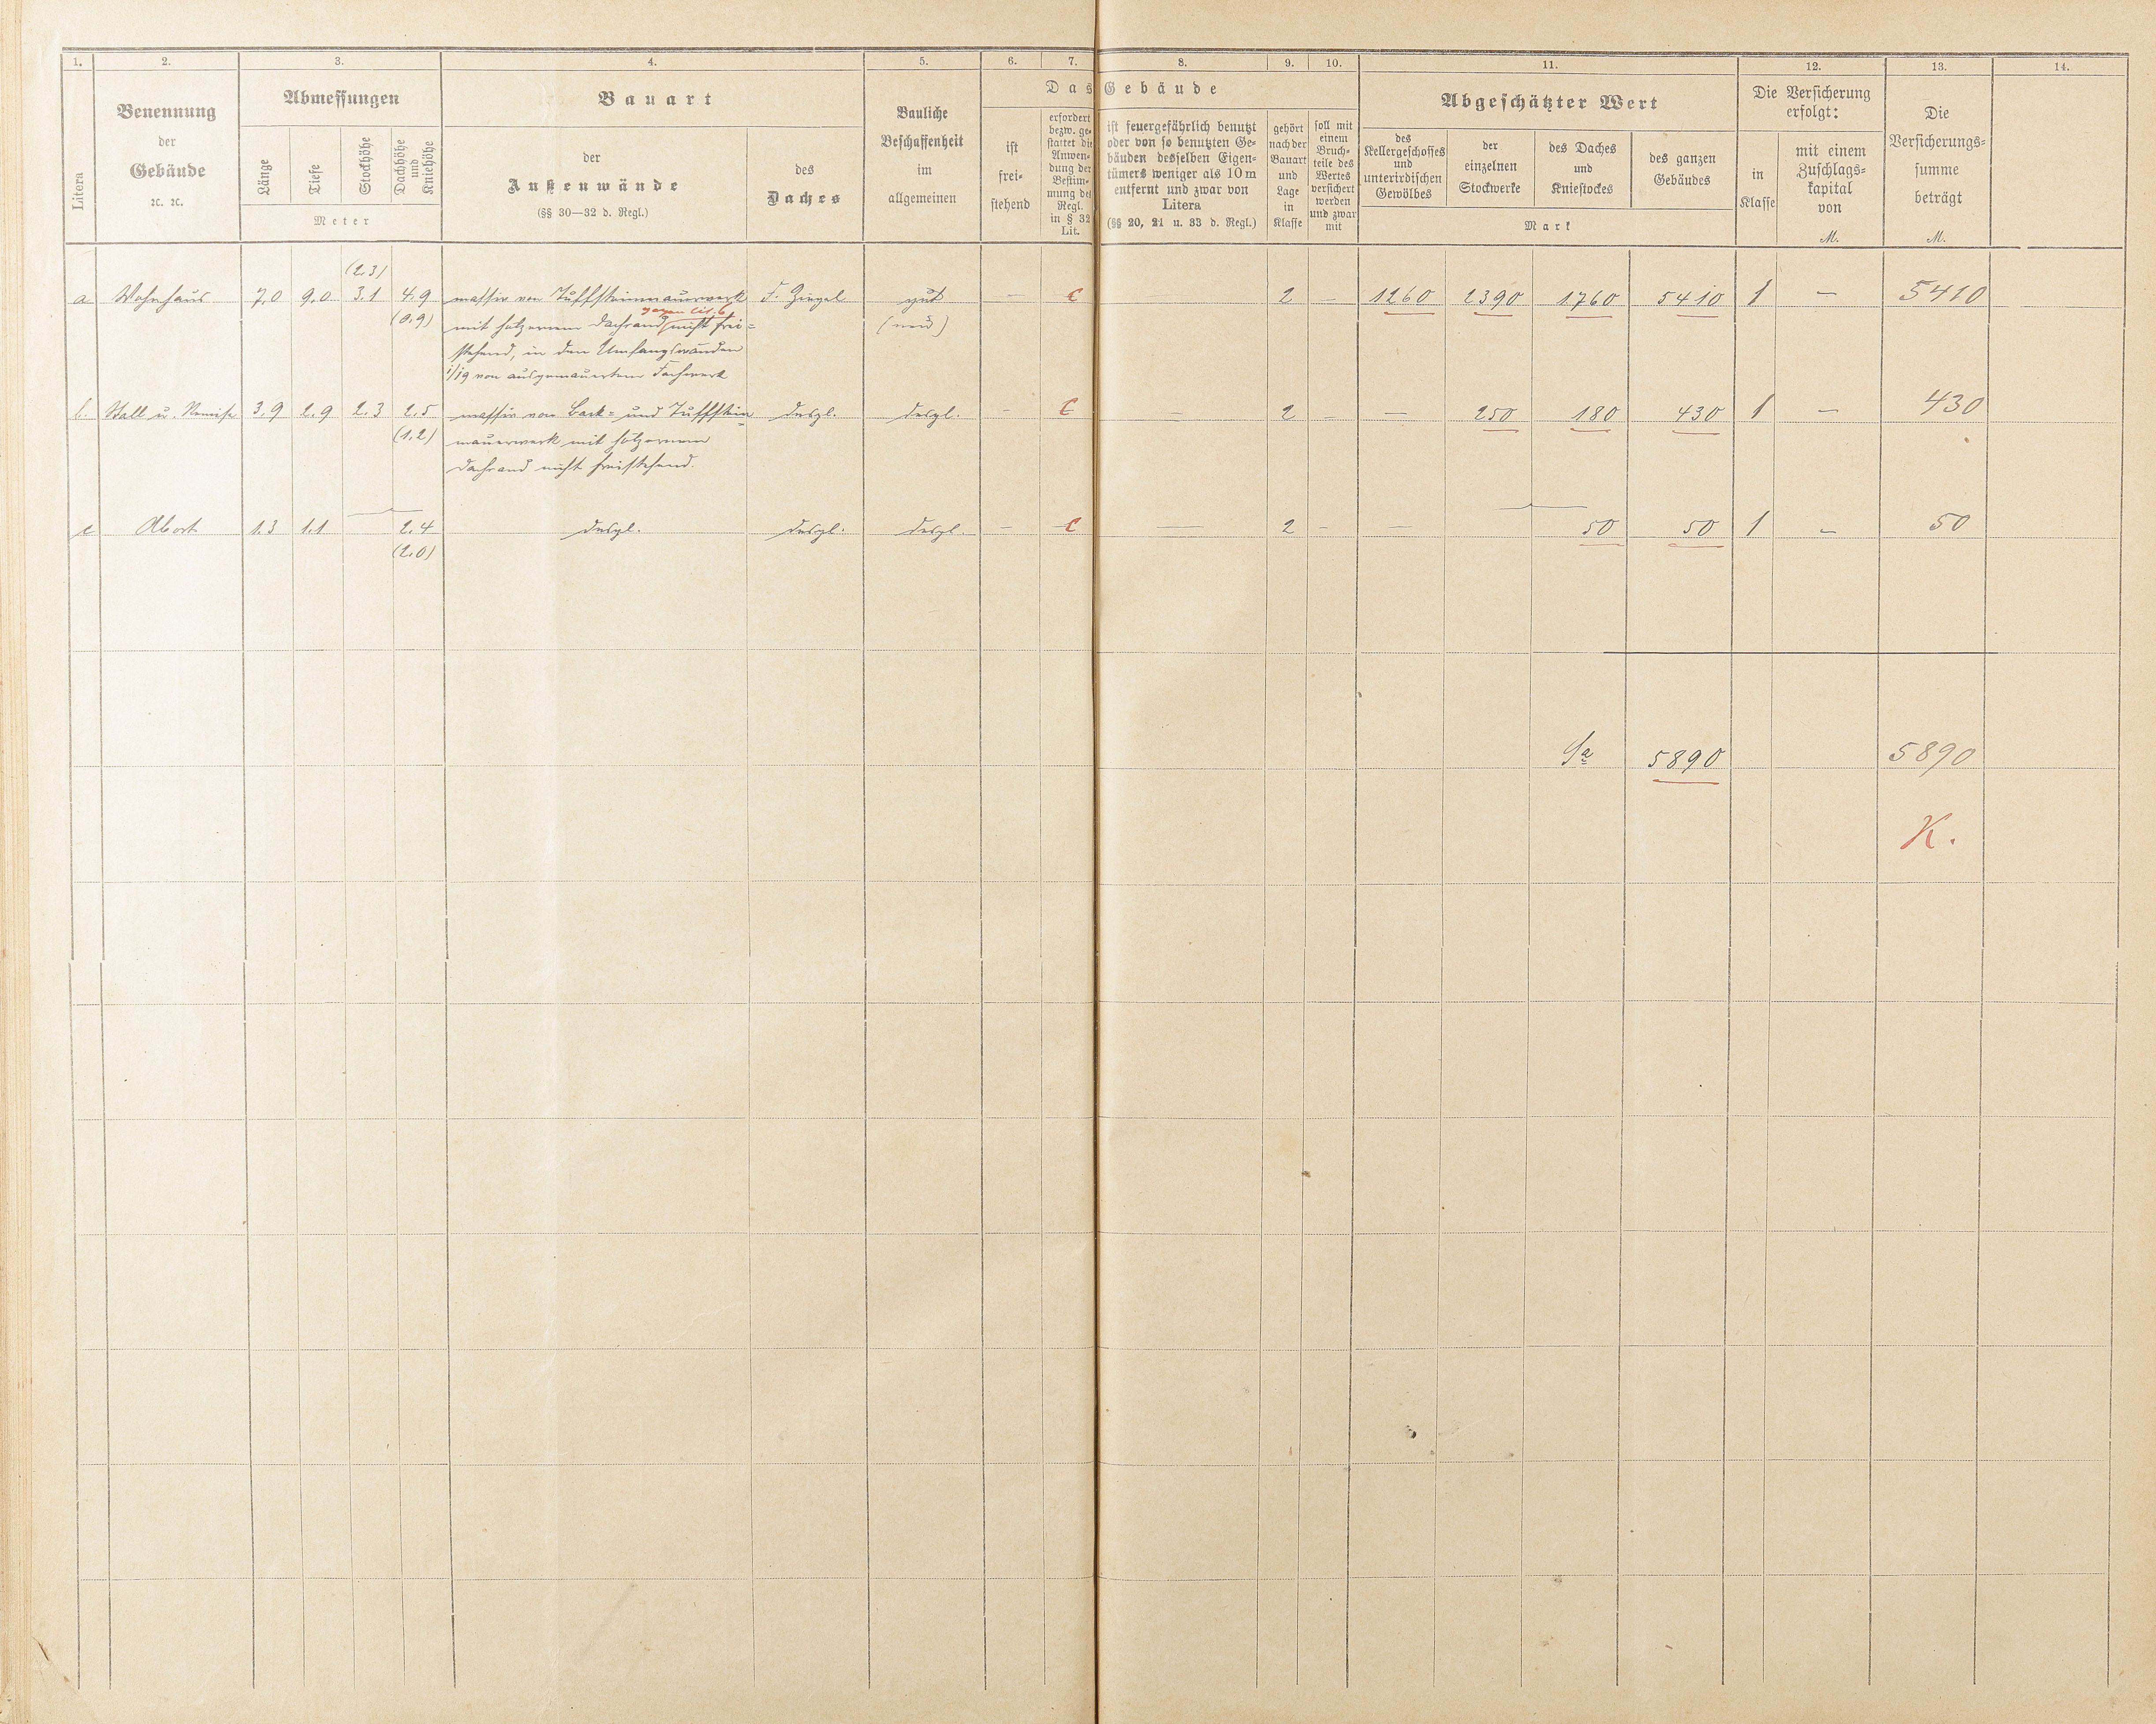 1. 2. 3. 4. 5. 6. 7. 8. 9. 10. 11. 12. 13. 14.
Litera
Benennung
der
Gebäude
ꝛc. ꝛc.
Abmessungen
Länge
Tiefe
Stockhöhe
Dachhöhe
und
Kniehöhe
Meter
Bauart
der
Außenwände
(§§ 30—32 d. Regl.)
des
Daches
Bauliche
Beschaffenheit
im
allgemeinen
Das Gebäude
ist
frei-
stehend
erfordert
bezw. ge-
stattet die
Anwen-
dung der
Bestim-
mung des
Regl.
in § 32
Lit.
ist feuergefährlich benutzt
oder von so benutzten Ge-
bäuden desselben Eigen-
tümers weniger als 10 m
entfernt und zwar von
Litera
(§§ 20, 21 u. 33 d. Regl.)
gehört
nach der
Bauart
und
Lage
in
Klasse
soll mit
einem
Bruch-
teile des
Wertes
versichert
werden
und zwar
mit
Abgeschätzter Wert
des
Kellergeschosses
und
unterirdischen
Gewölbes
der
einzelnen
Stockwerke
des Daches
und
Kniestockes
des ganzen
Gebäudes
Mark
Die Versicherung
erfolgt:
in
Klasse
mit einem
Zuschlags-
kapital
von
M.
Die
Versicherungs-
summe
beträgt
M.
(2,3)
a Wohnhaus 7,0 9,0 3,1 4,9 massiv von Tuffsteinmauerwerk F. Ziegel gut — C 2 — 1260 2390 1760 5410 1 — 5410
gegen Lit. b
(0,9) mit hölzernem Dachrand, nicht frei= (neu)
stehend, in den Umfangswänden
1/19 von ausgemauertem Fachwerk
b. Stall u. Remise 3,9 2,9 2,3 2,5 massiv von Back= und Tuffstein= desgl. desgl. — C — 2 — — 250 180 430 1 — 430
(1,2) mauerwerk mit hölzernem
Dachrand nicht freistehend.
c Abort 1,3 1,1 2,4 desgl. desgl. desgl. — C — 2 — — 50 50 1 — 50
(2,0)
Sa 5890 5890
K.